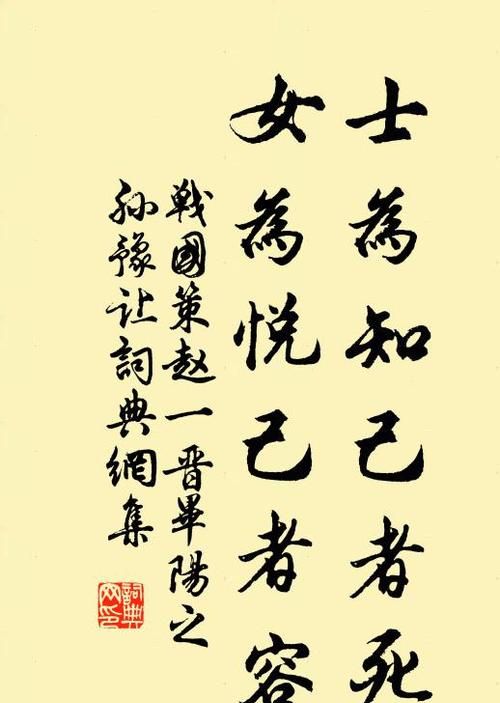 士為知己者死
女為悦己者容
戰國策赵一晋畢陽之
孙豫让詞典網集
詞典
网印